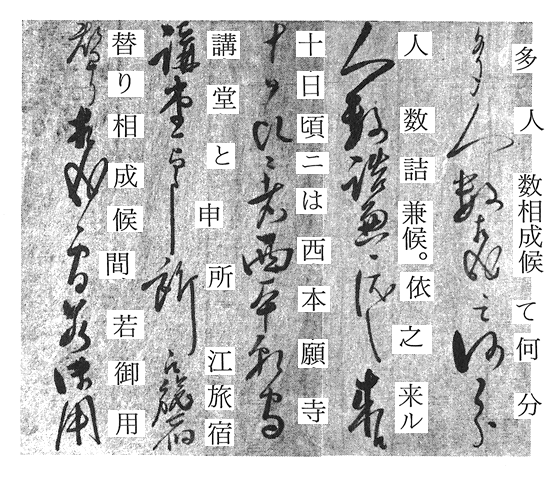 多人数相成候て何分
人数詰兼候。依之来ル
十日頃ニは西本願寺
講堂と申所江旅宿
替り相成候間若御用